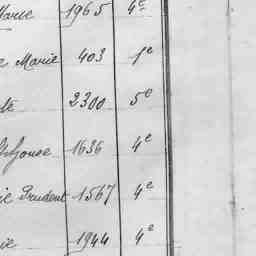 Marie 1965 4e
e Marie 403 1e
2300 5e
Alphonse 1636 4e
ie Prudent 1567 4e
ie 1944 4e